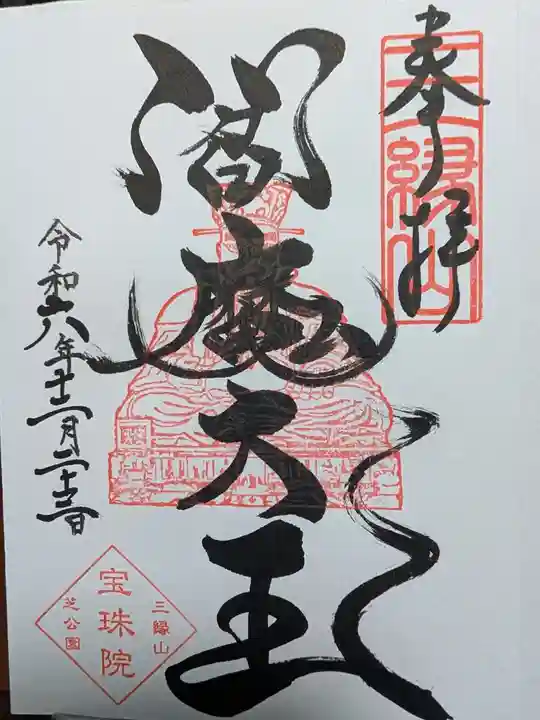 奉拝
三縁山
閻魔大王
令和六年十二月二十三日
三縁山
宝珠院
芝公園